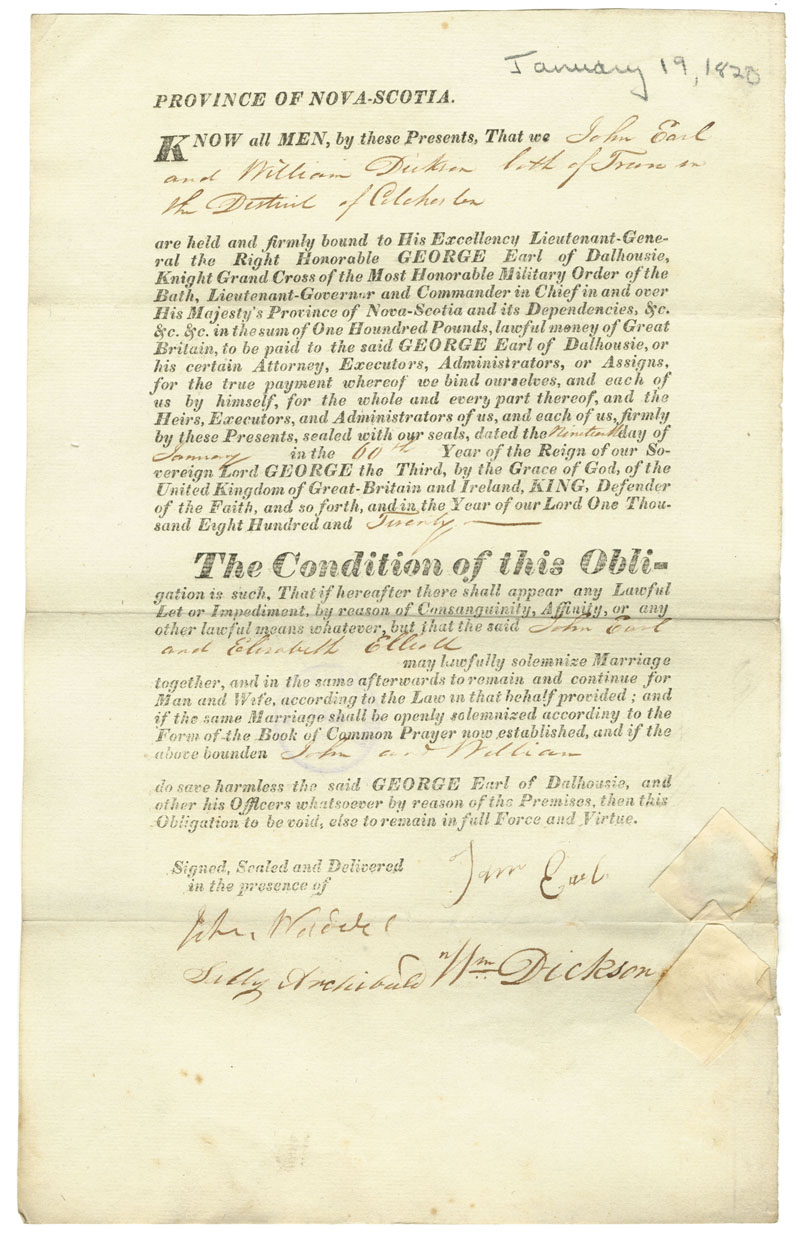 January 19, 1820
PROVINCE OF NOVA-SCOTIA.
KNOW all MEN, by these Presents, That we John Earl
and William Dickson both of Truro in
the District of Colchester
are held and firmly bound to His Excellency Lieutenant-Gene-
ral the Right Honorable GEORGE Earl of Dalhousie,
Knight Grand Cross of the Most Honorable Military Order of the
Bath, Lieutenant-Governor and Commander in Chief in and over
His Majesty's Province of Nova-Scotia and its Dependencies, &c.
&c. &c. in the sum of One Houndred Pounds, lawful money of Great
Britain, to be paid to the said GEORGE Earl of Dalhousie, or
his certain Attorney, Executors, Administrators, or Assigns,
for the true payment whereof we bind ourselves, and each of
us by himself, for the whole and every part thereof, and the
Heirs, Executors, and Administrators of us, and each of us, firmly
by these Presents, sealed with our seals, dated the Nineteenth day of
January in the 60th Year of the Reign of our So-
vereign Lord GEORGE the Third, by the Grace of God, of the
United Kingdom of Great-Britain and Ireland, KING, Defender
of the Faith, and so forth, and in the Year of our Lord One Thou-
sand Eight Hundred and Twenty
The Condition of this Obli-
gation is such, That if hereafter there shall appear any Lawful
Let or Impediment, by reason of Consanguinity, Affinity, or any
other lawful means whatever, but that the said John Earl
and Elizabeth Elliott
may lawfully solemnize Marriage
together, and in the same afterwards to remain and continue for
Man and Wife, according to the Law in that behalf provided; and
if the same Marriage shall be openly solemnized accordiny to the
Form of the Book of Common Prayer now established, and if the
above bounden John and William
do save harmless the said GEORGE Earl of Dalhousie, and
other his Officers whatsoever by reason of the Premises, then this
Obligation to be void, else to remain in full Force and Virtue.
Signed, Sealed and Delivered
in the presence of
Earl
John Waddel
Archibald
Wm Dickson